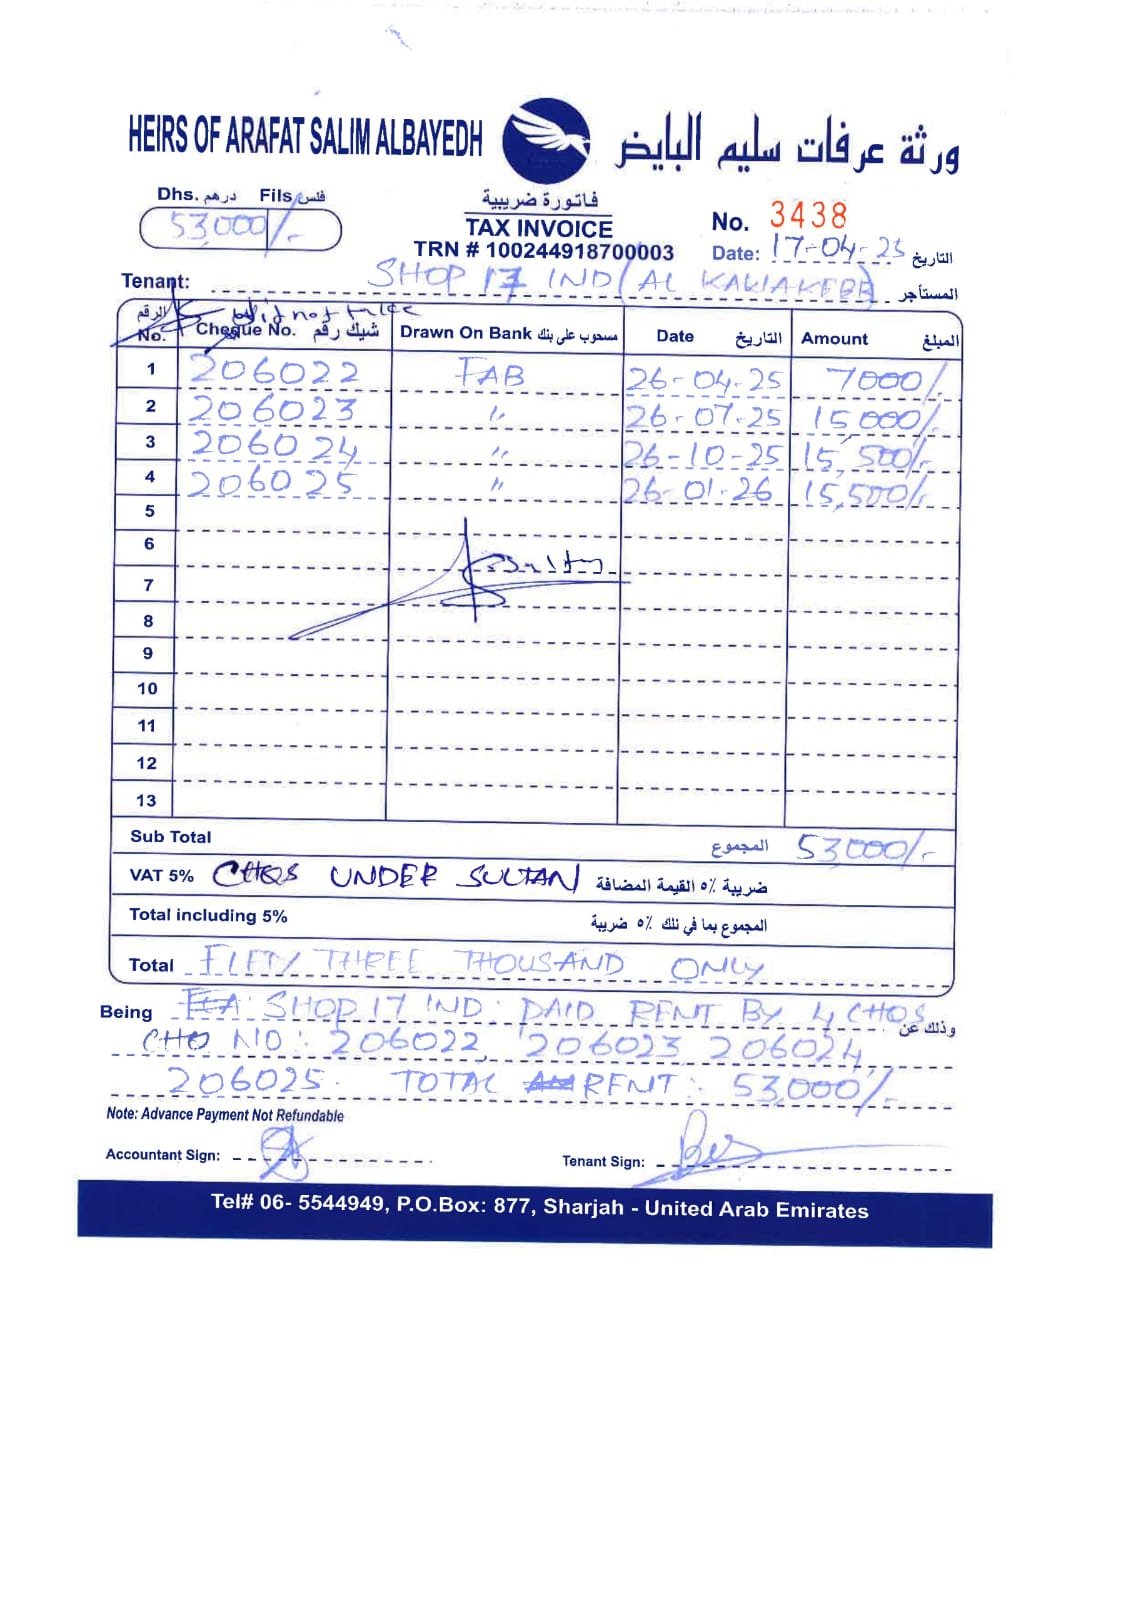 HEIRS OF ARAFAT SALIM ALBAYEDH ورثة عرفات سليم البايض
Dhs. درهم Fils فلس
53,000/-
فاتورة ضريبية
TAX INVOICE
TRN # 100244918700003
No. 3438
Date: 17-04-25 التاريخ
Tenant: SHOP 17 IND (AL المستأجر
الرقم No. Cheque No. شيك رقم Drawn On Bank مسحوب على بنك Date التاريخ Amount المبلغ
1 206022 FAB 26-04-25 7000/-
2 206023 " 26-07-25 15000/-
3 206024 " 26-10-25 15,500/-
4 206025 " 26-01-26 15,500/-
5
6
7
8
9
10
11
12
13
Sub Total المجموع 53,000/-
VAT 5% CHQS UNDER SULTAN ضريبة ٥٪ القيمة المضافة
Total including 5% المجموع بما في ذلك ٥٪ ضريبة
Total FIFTY THREE THOUSAND ONLY
Being SHOP 17 IND: PAID RENT BY 4 CHQS وذلك عن
CHQ NO: 206022, 206023 206024,
206025. TOTAL RENT: 53,000/-
Note: Advance Payment Not Refundable
Accountant Sign:
Tenant Sign:
Tel# 06- 5544949, P.O.Box: 877, Sharjah - United Arab Emirates